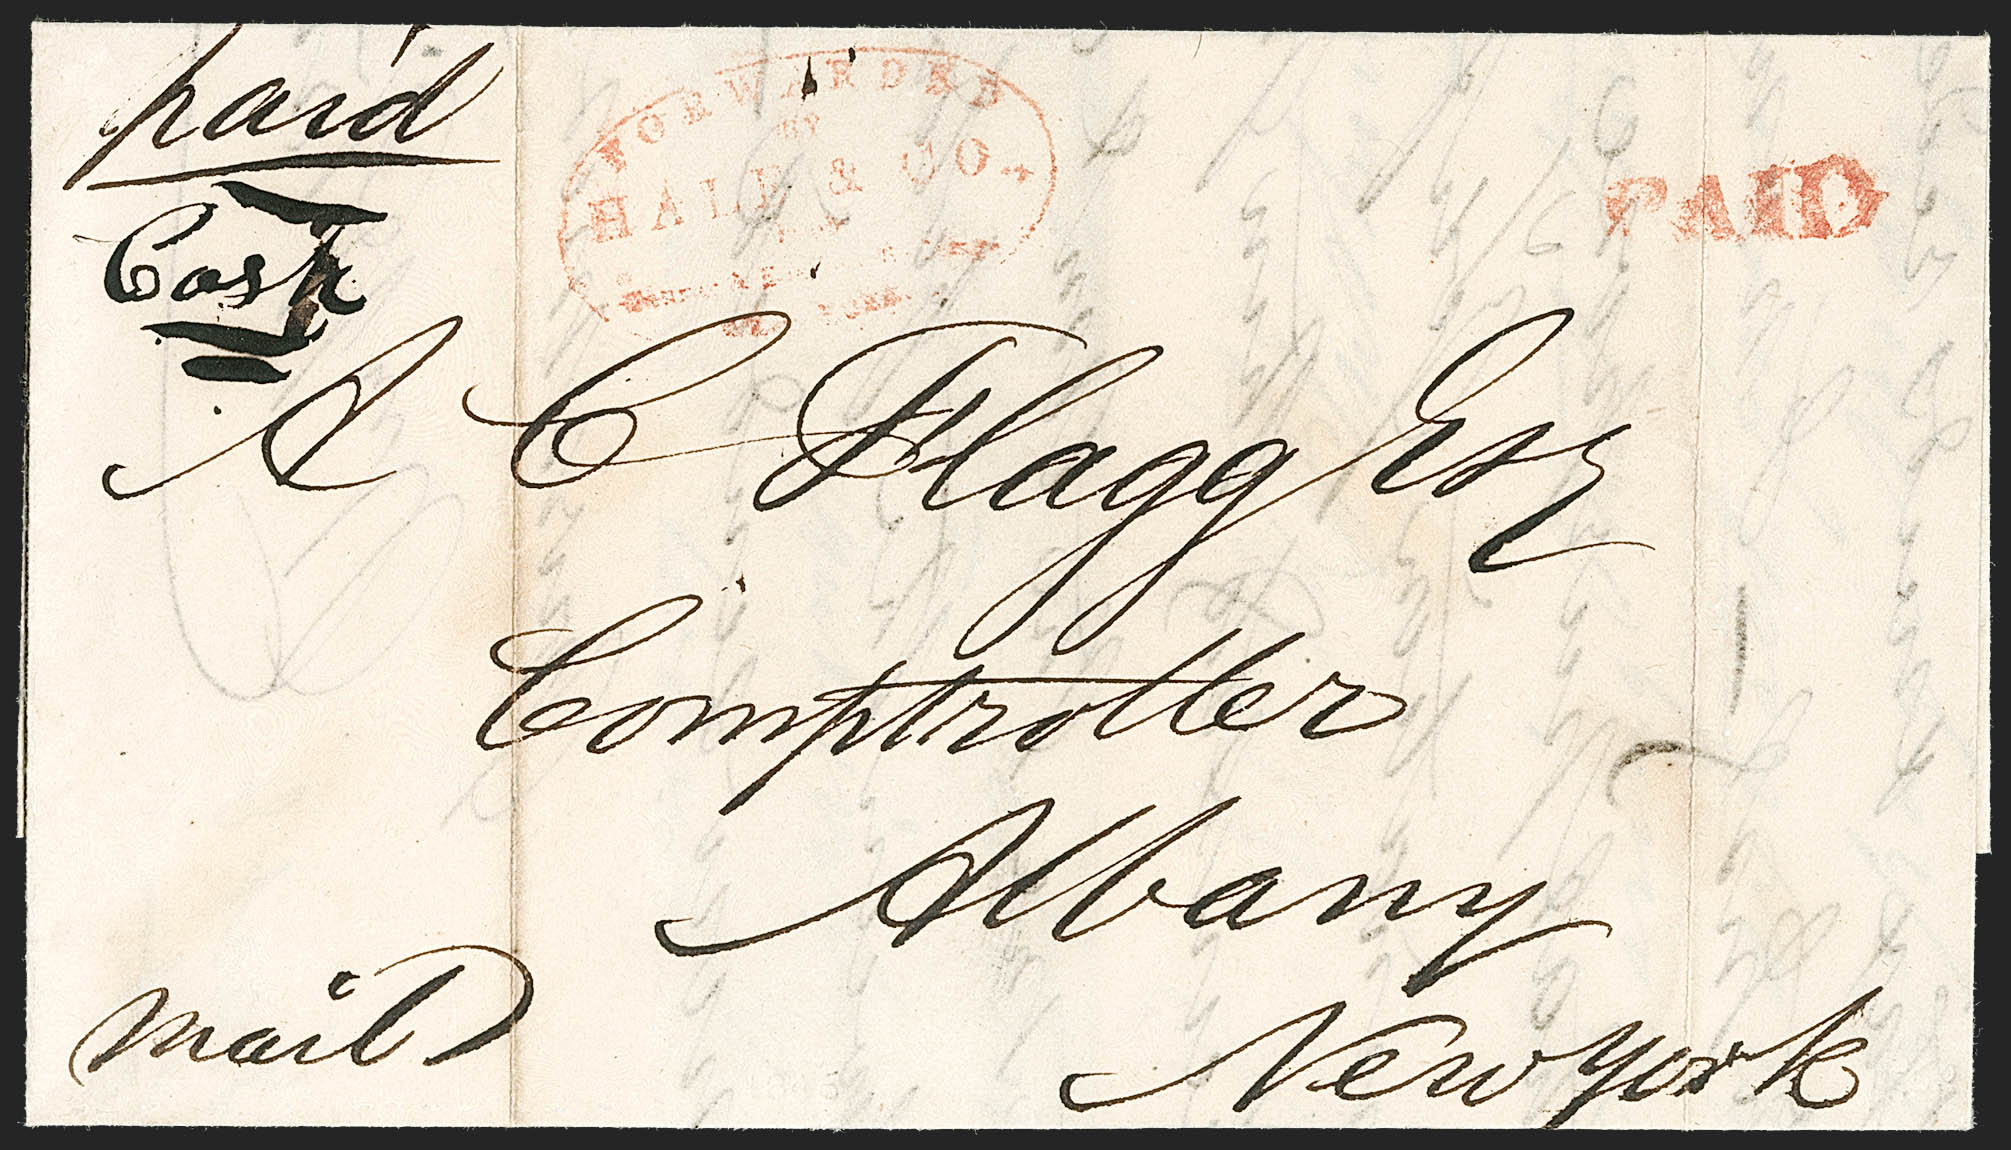 paid
Cash
FORWARDED
BY
HALE & CO.
PAID
A C Flagg Esq
Comptroller
Albany
New York
mail